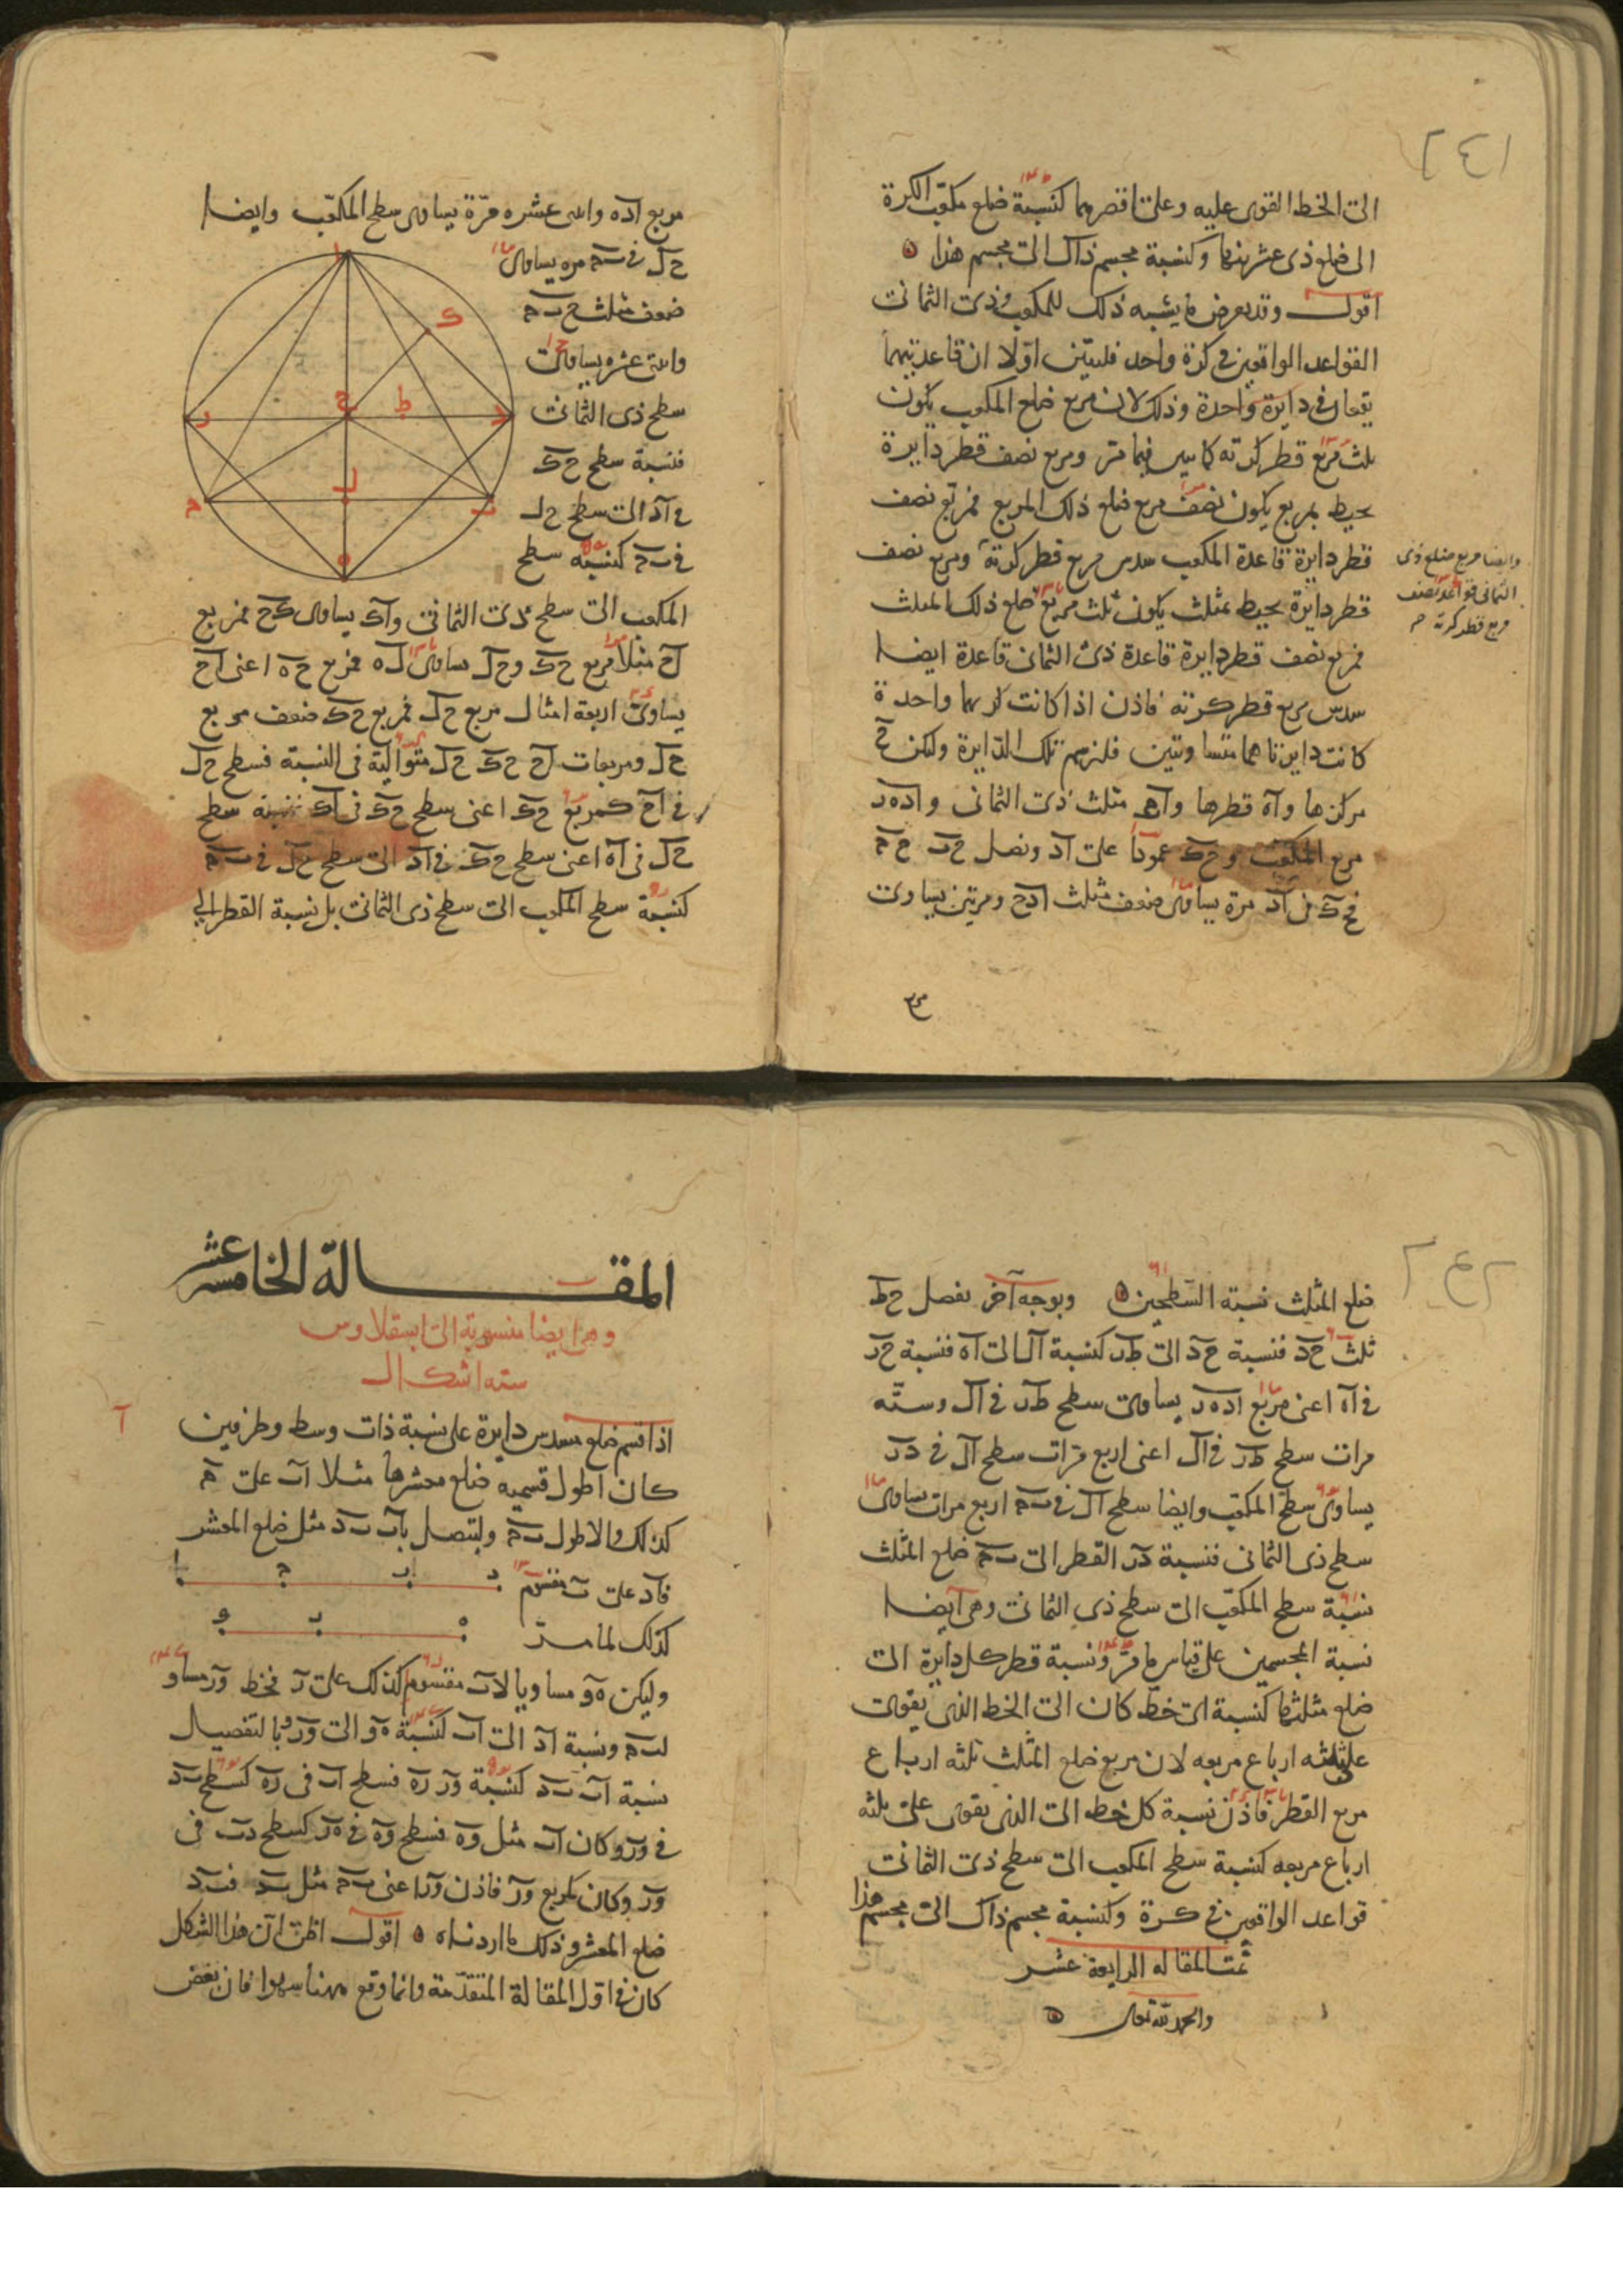 الى الخط القوى عليه وعلى اقصرهما كنسبة ضلع مكعب الكرة
الى ضلع ذى عشرينها وكنسبة مجسم ذاك الى مجسم هذا
اقول وقد يعرض ما يشبه ذلك للمكعب وذى الثمانى
القواعد الواقعين فى كرة واحد فلنبين اولا ان قاعدتيهما
يقعان فى دايرة واحدة وذلك لان مربع ضلع المكعب يكون
ثلث مربع قطر كرته كما تبين فيما مر ومربع نصف قطر دايرة
يحيط بمربع يكون نصف مربع ضلع ذلك المربع فمربع نصف
قطر دايرة قاعدة المكعب سدس مربع قطر كرته ومربع نصف
قطر دايرة يحيط بمثلث يكون ثلث مربع ضلع ذلك المثلث
فمربع نصف قطر دايرة قاعدة ذى الثمانى قاعدة ايضا
سدس مربع قطر كرته فاذن اذا كانت كرتهما واحدة
كانت دايرتاهما متساويتين فلنرسم تلك الدايرة وليكن ح
مركزها و اه قطرها و ا ب ج مثلث ذى الثمانى و ا د ه ر
مربع المكعب و ح ك عمودا على ا د ونصل ح ب ح ج
فح ك فى ا د مرة يساوى ضعف مثلث ا د ح ومرتين يساوى
وايضا مربع ضلع ذى
الثمانى قواعد نصف
مربع قطر كرته
مربع ا د ه واثنى عشره مرة يساوى سطح المكعب وايضا
ح ل فى ب ج مره يساوى
ضعف مثلث ح ب ج
واثنى عشره يساوى
سطح ذى الثمانى
فنسبة سطح ح ك
فى ا د الى سطح ح ل
فى ب ج كنسبة سطح
المكعب الى سطح ذى الثمانى و ا ك يساوى ك ح فمربع
ا ح مثلا مربع ح ك و ح ل يساوى ل ه فمربع ح ه اعنى ا ح
يساوى اربعة امثال مربع ح ل فمربع ح ك ضعف مربع
ح ل ومربعات ا ح ح ك ح ل متوالية فى النسبة فسطح ح ل
فى ا ح كمربع ح ك اعنى سطح ح ك فى ا ك فنسبة سطح
ح ل فى ا ه اعنى سطح ح ك فى ا د الى سطح ح ل فى ب ج
كنسبة سطح المكعب الى سطح ذى الثمانى بل نسبة القطر الى
ضلع المثلث نسبة السطحين وبوجه آخر نفصل ح ط
ثلث ح د فنسبة ح د الى ط ر كنسبة ا ل الى ا ه فنسبة ح ر
فى ا ه اعنى مربع ا د ه ر يساوى سطح ط ر فى ا ل وستة
مرات سطح ط ر فى ا ل اعنى اربع مرات سطح ا ل فى د ر
يساوى سطح المكعب وايضا سطح ا ل فى ب ج اربع مرات يساوى
سطح ذى الثمانى فنسبة د ر القطر الى ب ج ضلع المثلث
نسبة سطح المكعب الى سطح ذى الثمانى وهى ايضا
نسبة المجسمين على قياس ما مر ونسبة قطر كل دايرة الى
ضلع مثلثها كنسبة اى خط كان الى الخط الذى يقوى
على ثلثه ارباع مربعه لان مربع ضلع المثلث ثلثه ارباع
مربع القطر فاذن نسبة كل خط الى الذى يقوى على ثلثه
ارباع مربعه كنسبة سطح المكعب الى سطح ذى الثمانى
قواعد الواقعين فى كرة وكنسبة مجسم ذاك الى مجسم هذا
تمت المقاله الرابعة عشر
والحمد لله تعالى
المقالة الخامسة عشر
وهى ايضا منسوبة الى ابسقلاوس
سته اشكال
اذا قسم ضلع مسدس دايرة على نسبة ذات وسط وطرفين
كان اطول قسميه ضلع معشرها مثلا ا ب على ج
كذلك والاطول ب ج وليتصل با ب ب د مثل ضلع المعشر
فا د على ب منقسم
كذلك لما مر
وليكن ه و مساويا لا ب مقسوم كذلك على ر فخط و ر مساو
لب ج ونسبة ا د الى ا ب كنسبة ه و الى و ر وبالتفصيل
نسبة ا ب ب د كنسبة و ر ر ه فسطح ا ب فى ر ه كسطح ب د
فى و ر وكان ا ب مثل و ه فسطح و ه فى ه ر كسطح د ب فى
و ر وكان كمربع و ر فاذن و ر اعنى ب ج مثل ب د فب د
ضلع المعشر وذلك ما اردناه اقول اظن ان هذا الشكل
كان فى اول المقالة المتقدمة وانما وقع ههنا سهوا فان بعض